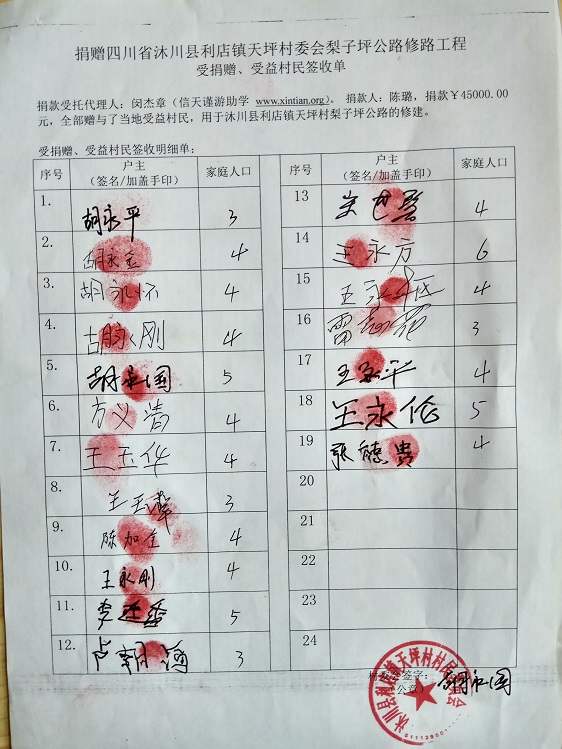 捐赠四川省沐川县利店镇天坪村委会梨子坪公路修路工程
受捐赠、受益村民签收单
捐款受托代理人：闵杰章（信天谨游助学 www.xintian.org）。 捐款人：陈璐，捐款￥45000.00
元，全部赠与了当地受益村民，用于沐川县利店镇天坪村梨子坪公路的修建。
受捐赠、受益村民签收明细单：
序号 户主（签名/加盖手印） 家庭人口
1. 胡永平 3
2. 胡永金 4
3. 胡永怀 4
4. 胡永刚 4
5. 胡永国 5
6. 方义清 4
7. 王玉华 4
8. 王玉 3
9. 陈加金 4
10. 王永刚 4
11. 李 5
12. 卢朝 3
序号 户主（签名/加盖手印） 家庭人口
13 4
14 王永方 6
15 王永 4
16 雷 3
17 王 平 4
18 王永伦 5
19 张德贵 4
20
21
22
23
24
签字： 胡永国
（公章）
沐川县利店镇天坪村村民委员会